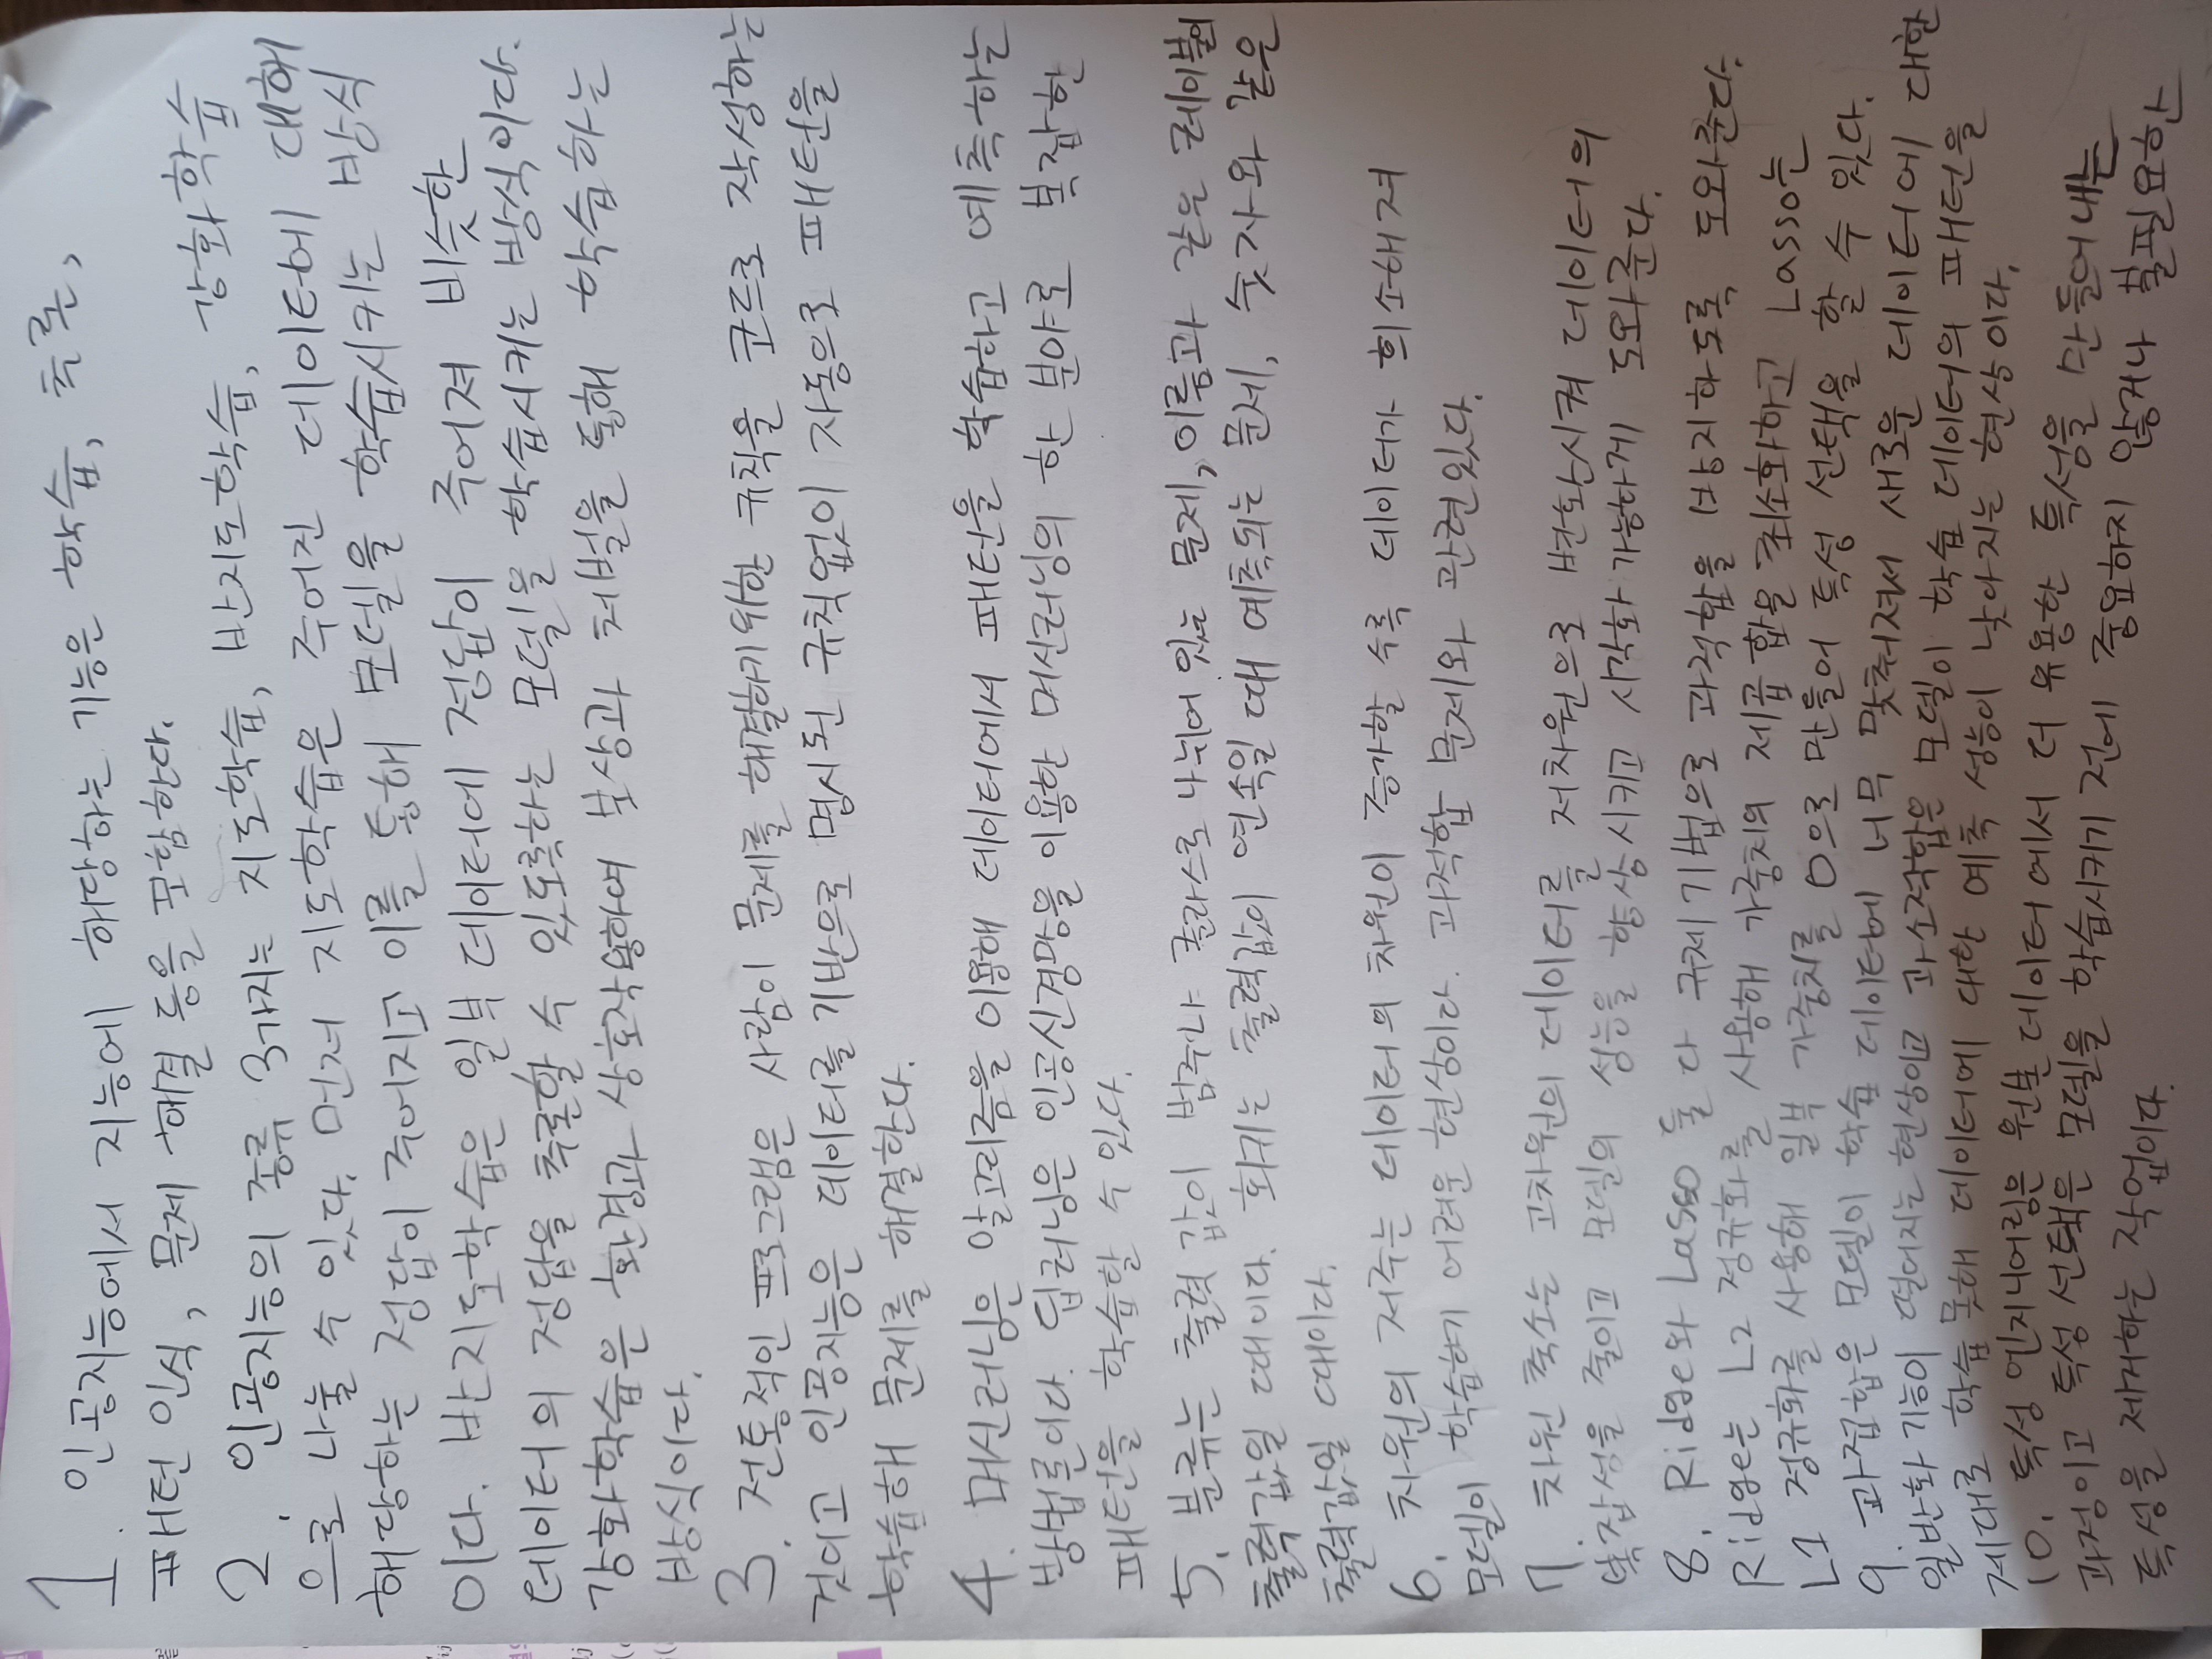 1. 인공지능에서 지능에 해당하는 기능은 학습, 추론,
패턴 인식, 문제 해결 등을 포함한다.
2. 인공지능의 종류 3가지는 지도학습, 반지도학습, 강화학습
으로 나눌 수 있다. 먼저 지도학습은 주어진 데이터에 대해
해당하는 정답이 주어지고 이를 통해 모델을 학습시키는 방식
이다. 반지도학습은 일부 데이터에 정답이 주어져 비슷한
데이터의 정답을 추론할 수 있도록하는 모델을 학습시키는 방식이다.
강화학습은 환경과 상호작용하여 보상과 처벌을 통해 학습하는
방식이다.
3. 전통적인 프로그램은 사람이 문제를 해결하기위한 규칙을 코드로 작성하는
것이고 인공지능은 데이터를 기반으로 명시된 규칙없이 자동으로 패턴을
학습해 문제를 해결한다.
4. 머신러닝은 알고리즘을 이용해 데이터에서 패턴을 학습하고 예측하는
방법론이다. 딥러닝은 인공신경망을 이용한 머신러닝의 한 분야로 복잡한
패턴을 학습할 수 있다.
5. 분류는 출력 값이 범주나 클라스로 나뉘어 있는 문제, 이름과 같은 레이블이
출력값일 때이다. 회귀는 출력값이 연속일 때 예측되는 문제, 숫자와 같은
출력값일 때이다.
6. 차원의 저주는 데이터의 차원이 증가할 수록 데이터가 희소해져
모델이 학습하기 어려운 현상이다. 과적합 문제와 관련있다.
7. 차원 축소는 고차원의 데이터를 저차원으로 변환시켜 데이터의
복잡성을 줄이고 모델의 성능을 향상시키고 시각화 가능하게 도와준다.
8. Ridge와 Lasso 둘 다 규제 기법으로 과적합을 방지하도록 도와준다.
Ridge는 L2 정규화를 사용해 가중치의 제곱 합을 최소화하고 Lasso는
L1 정규화를 사용해 일부 가중치를 0으로 만들어 특성 선택을 할 수 있다.
9. 과접합은 모델이 학습 데이터에 너무 맞춰져서 새로운 데이터에 대한
일반화 기능이 떨어지는 현상이고 과소적합은 모델이 학습 데이터의 패턴을
제대로 학습 못해 데이터에 대한 예측 성능이 낮아지는 현상이다.
10. 특성 엔지니어링은 원본 데이터에서 더 유용한 특성을 만들어내는
과정이고 특성 선택은 모델을 학습시키기 전에 중요하지 않거나 불필요한
특성을 제거하는 작업이다.